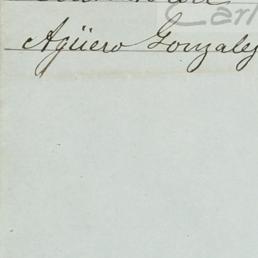 Carl
Agüero Gonzalez